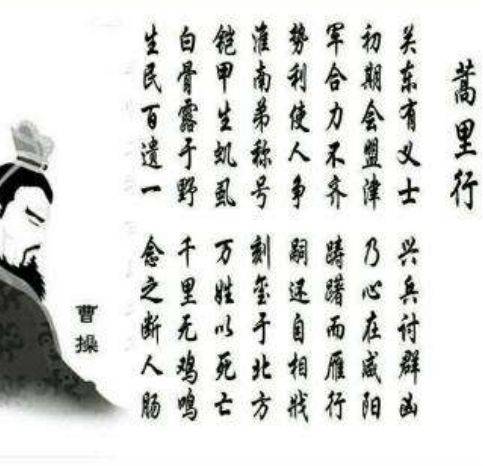 蒿里行
关东有义士 兴兵讨群凶
初期会盟津 乃心在咸阳
军合力不齐 踌躇而雁行
势利使人争 嗣还自相戕
淮南弟称号 刻玺于北方
铠甲生虮虱 万姓以死亡
白骨露于野 千里无鸡鸣
生民百遗一 念之断人肠
曹操